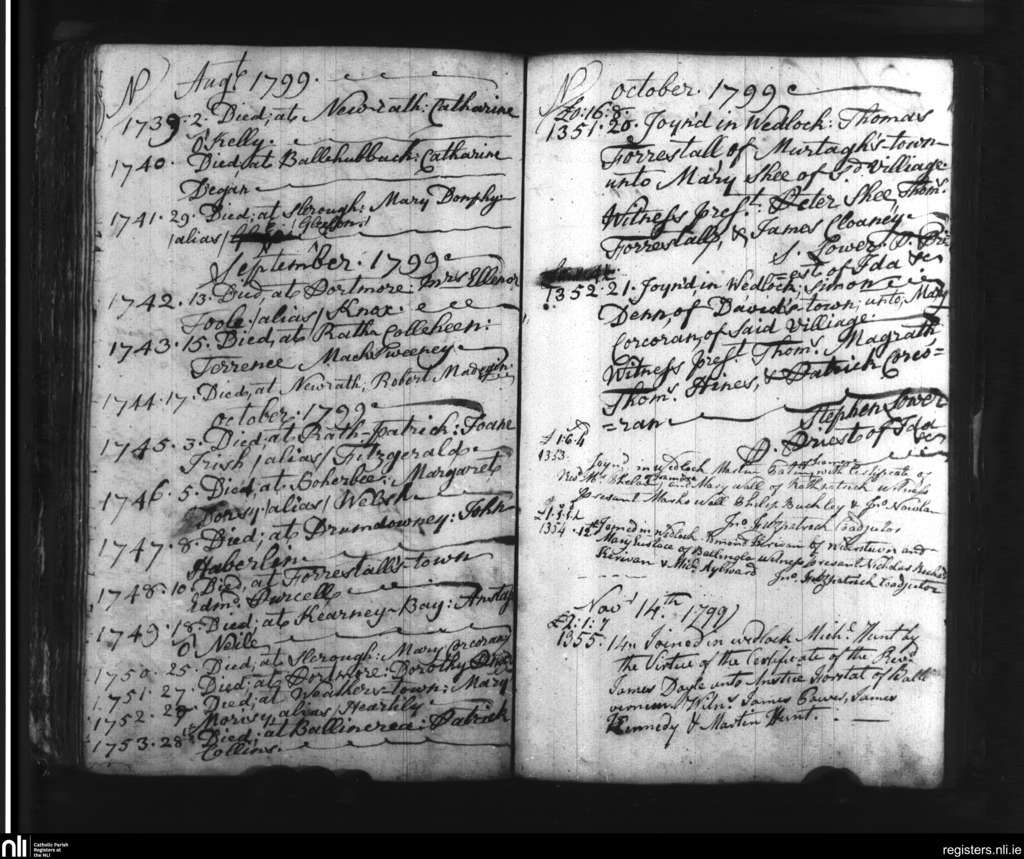 N Augt 1799.
1739. 2. Died, at New-rath: Catharine
O'Kelly.
1740. Died, at Ballehubbuck: Catharine
Degan
1741. 29. Died; at Slerough: Mary Donphy
/alias/ Gleeson!
September. 1799
1742. 13. Died, at Portmore: Mrs Ellenor
Toole /alias/ Knox.
1743. 15. Died, at Rath Colleheen:
Terrence MackSweeney.
1744. 17. Died, at Newrath, Robert
October. 1799
1745. 3. Died; at Rath-Patrick: Joane
Irish /alias/ Fitzgerald.
1746. 5. Died, at Margaret
/alias/ Welsh
1747. 8. Died; at Drumdowney: John
Haberlin
1748. 10. Died, at Forrestalls-town
Edmd. Purcell
1749. 18. Died; at Kearney-Bay: Anstas
O'Neile
1750. 25. Died, at Slerough: Mary Corcoran
1751. 27. Died; at Portmore: Dorothy
1752. 29 Died, at Weathers-town: Mary
Morisy alias Heartily
1753. 28th Died; at Ballincrea: Patrick
Collins.
N October. 1799
£0:16:8.
1351. 20. Joyn'd in Wedlock: Thomas
Forrestall of Murtagh's-town
unto Mary Shee of Sd. Villiage.
Witness prest. Peter Shee, Thoms.
Forrestall, & James Cloaney.
S. Lower. P. Pri
est of Ida
1352. 21. Joyn'd in Wedlock; Simon
Denn, of David's-town; unto, Mary
Corcoran, of Said Villiage.
Witness prest. Thoms. Magrath
Thoms. Hines, & Patrick Corco=
=ran
Stephen Lower
P. Priest of Ida
£1:6:4
1353. Joynd in Wedlock Martin with Certificate of
Revd. Mr. Phelan unto Mary Wall of Rathpatrick witness
Presant Marks Wall Philip Buckley & Jno. Nowlan
Jno. Fitzpatrick Coadjutor
1354. 12th Joined in wedlock Edmond Kerivan of and
Mary Eustace of Ballingla Witness presant Nicholas
Kerivan & Michl. Aylward Jno. Fitzpatrick Coadjutor
Novr 14th. 1799
£2:1:7
1355. 14th Joined in wedlock Michl. Hunt by
the Virtue of the Certificate of the Revd.
James Doyle unto Anstice Forstal of Ball
Witns. James Power, James
Kennedy & Martin Hunt.
nli
Catholic Parish
Registers at
the NLI
registers.nli.ie